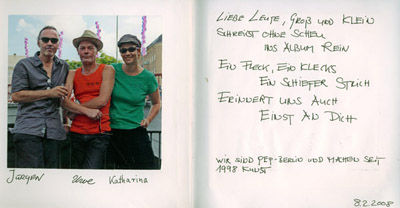 Jürgen Uwe Katharina
LIEBE LEUTE, GROß UND KLEIN
SCHREIBT OHNE SCHEU
INS ALBUM REIN
EIN FLECK, EIN KLECKS
EIN SCHIEFER STRICH
ERINNERT UNS AUCH
EINST AN DICH
WIR SIND PEP-BERLIN UND MACHEN SEIT
1998 KUNST
8.2.2008